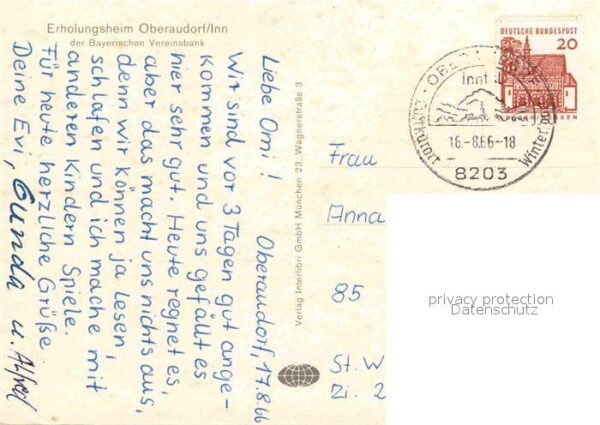 Erholungsheim Oberaudorf/Inn
der Bayerischen Vereinsbank
Oberaudorf, 17.8.66
Liebe Omi!
Wir sind vor 3 Tagen gut ange-
kommen und uns gefällt es
hier sehr gut. Heute regnet es,
aber das macht uns nichts aus,
denn wir können ja lesen,
schlafen und ich mache mit
anderen Kindern Spiele.
Für heute herzliche Grüße
Deine Evi, Gunda u. Alfred
Verlag Interlibri GmbH München 23, Wagnerstraße 3
DEUTSCHE BUNDESPOST
20
16.-8.66-18
8203
Luftkurort
Frau
Anna
85
St. W
Zi. 2
privacy protection
Datenschutz